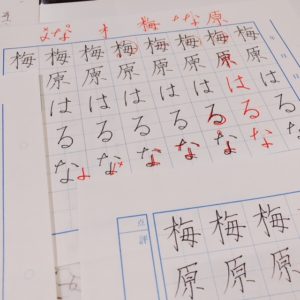 梅原はるな
梅原はるな
梅原はるな
梅原はるな
梅原はるな
梅原はるな
梅原はるな
梅
梅原
梅原
梅原
点評